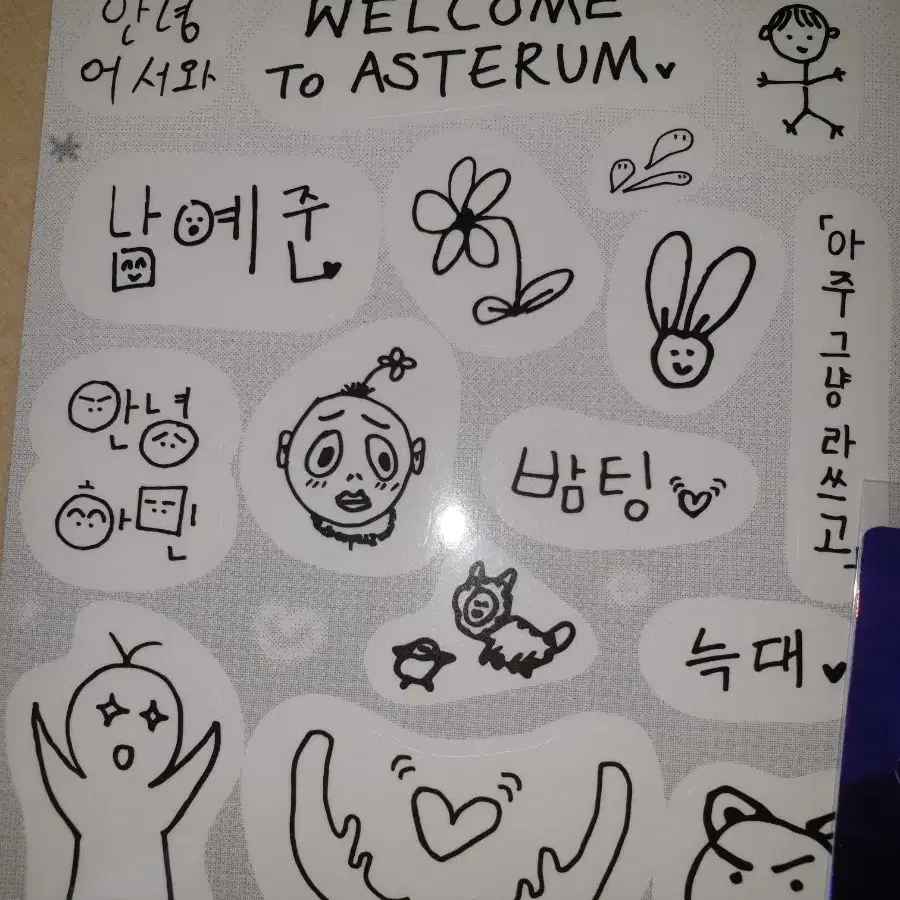 안녕
어서와
WELCOME
To ASTERUM
남예준
「아주 그냥 라쓰고」
안녕
하민
밤팅
늑대